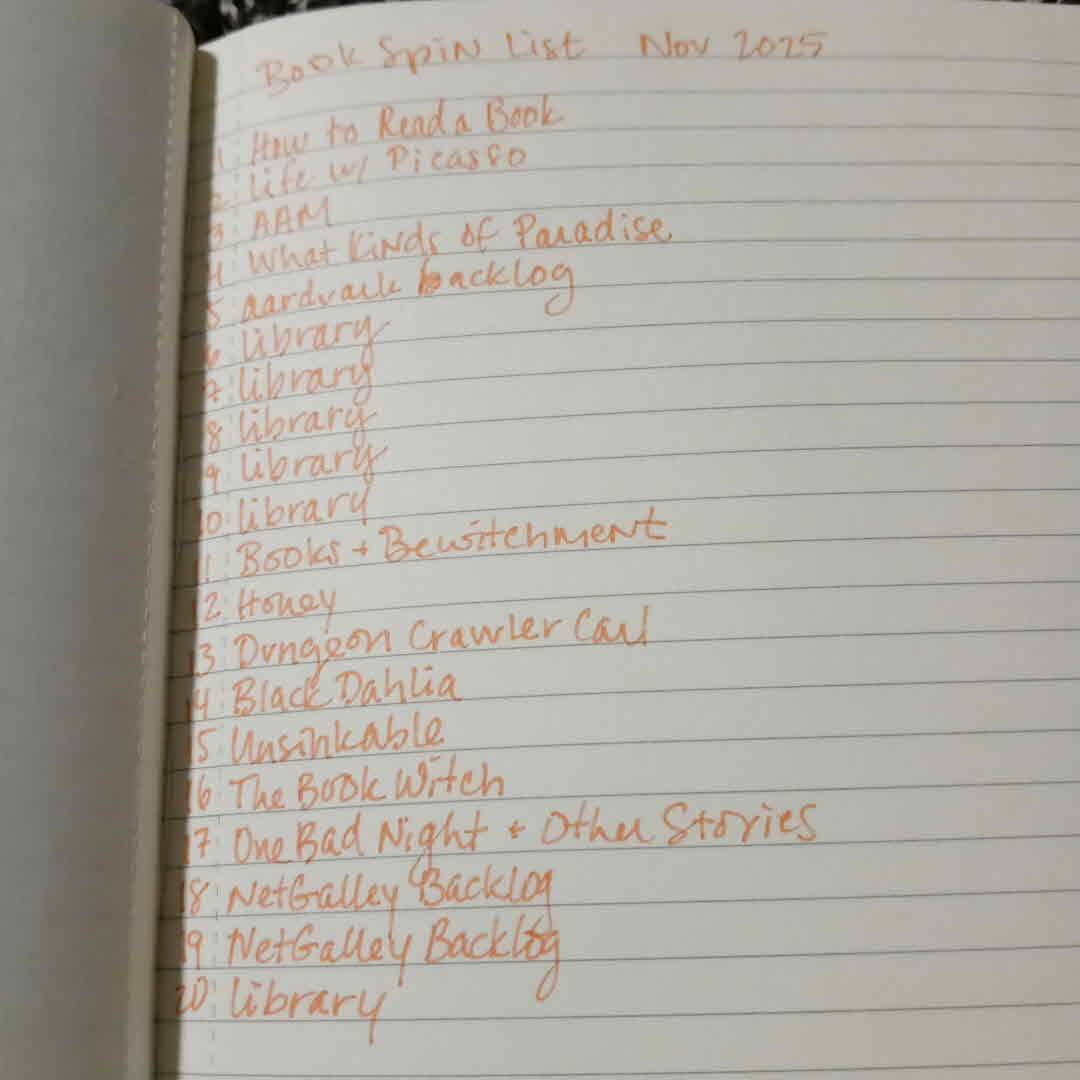 Book Spin List Nov 2025
1 How to Read a Book
2 Life w/ Picasso
3 AAM
4 What Kinds of Paradise
5 aardvark backlog
6 library
7 library
8 library
9 library
10 library
11 Books + Bewitchment
12 Honey
13 Dungeon Crawler Carl
14 Black Dahlia
15 Unsinkable
16 The Book Witch
17 One Bad Night + Other Stories
18 NetGalley Backlog
19 NetGalley Backlog
20 library